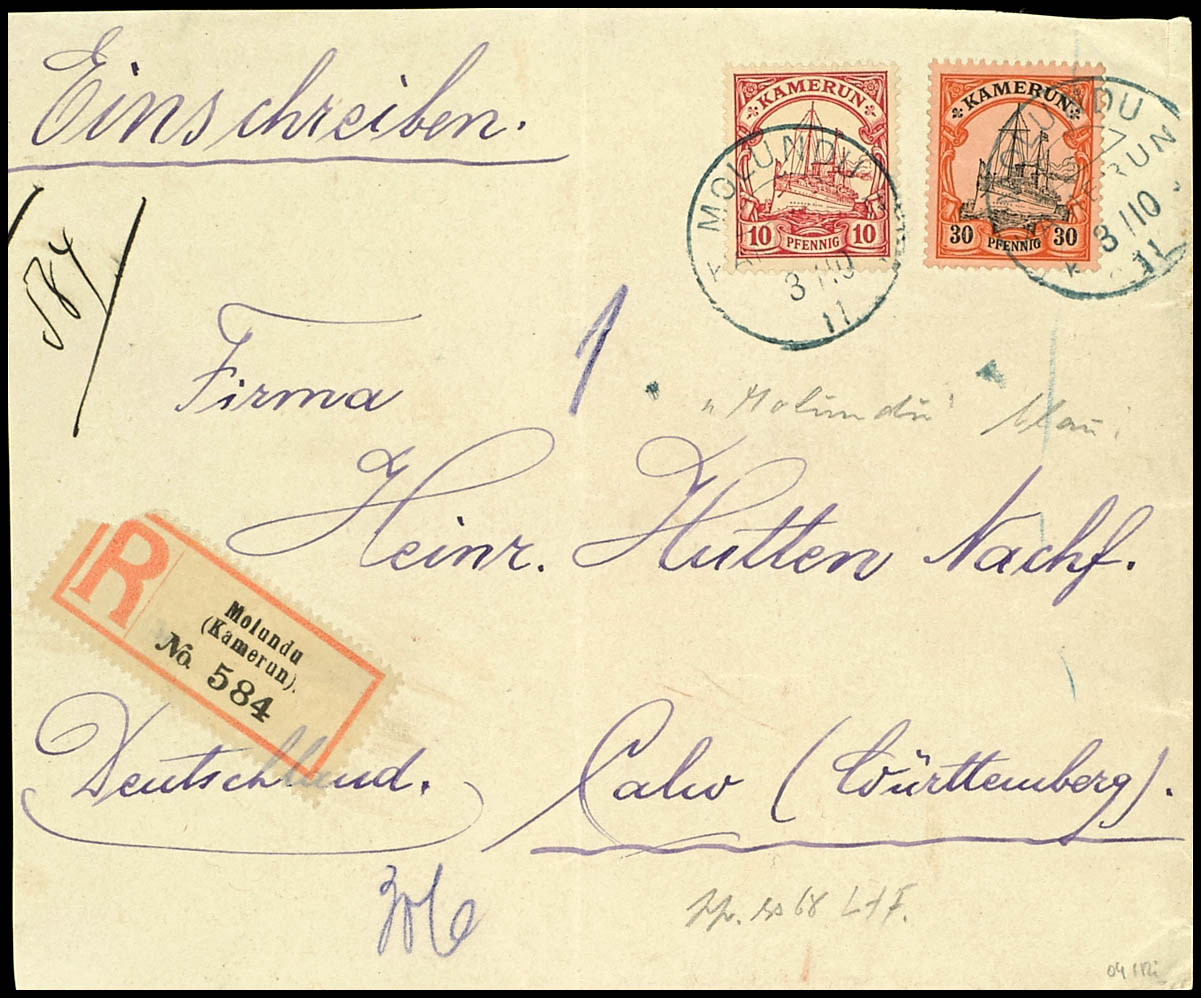 Einschreiben.
KAMERUN
10 PFENNIG 10
KAMERUN
30 PFENNIG 30
MOLUNDU
3 /10
11
3 /10
11
584
1
Firma
"Molundu" blau!
Heinr. Hutten Nachf.
R
Molundu
(Kamerun).
No. 584
Deutschland.
Calw (Württemberg).